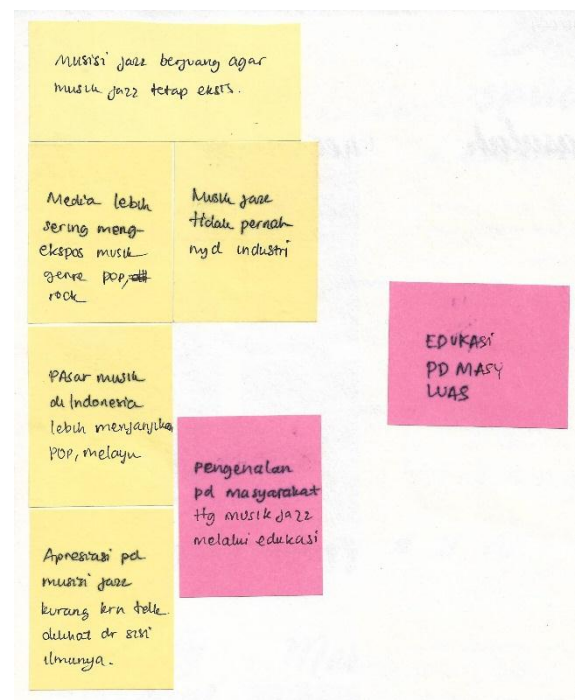 Musisi jazz berjuang agar
musik jazz tetap eksis.
Media lebih
sering meng-
ekspos musik
genre POP,
rock
Musik jazz
tidak pernah
njd industri
PAsar musik
di Indonesia
lebih menjanjikan
POP, melayu
Apresiasi pd
musisi jazz
kurang krn tdk
dilihat dr sisi
ilmunya.
pengenalan
pd masyarakat
ttg musik jazz
melalui edukasi
EDUKASI
PD MASY
LUAS